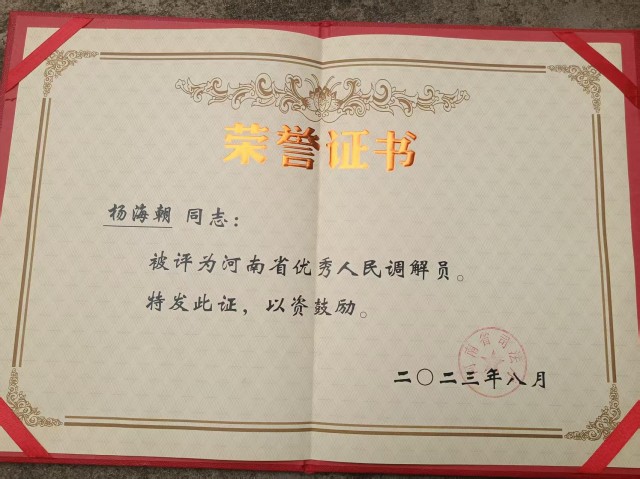 荣誉证书
杨海朝 同志：
被评为河南省优秀人民调解员。
特发此证，以资鼓励。
南省司法
二〇二三年八月